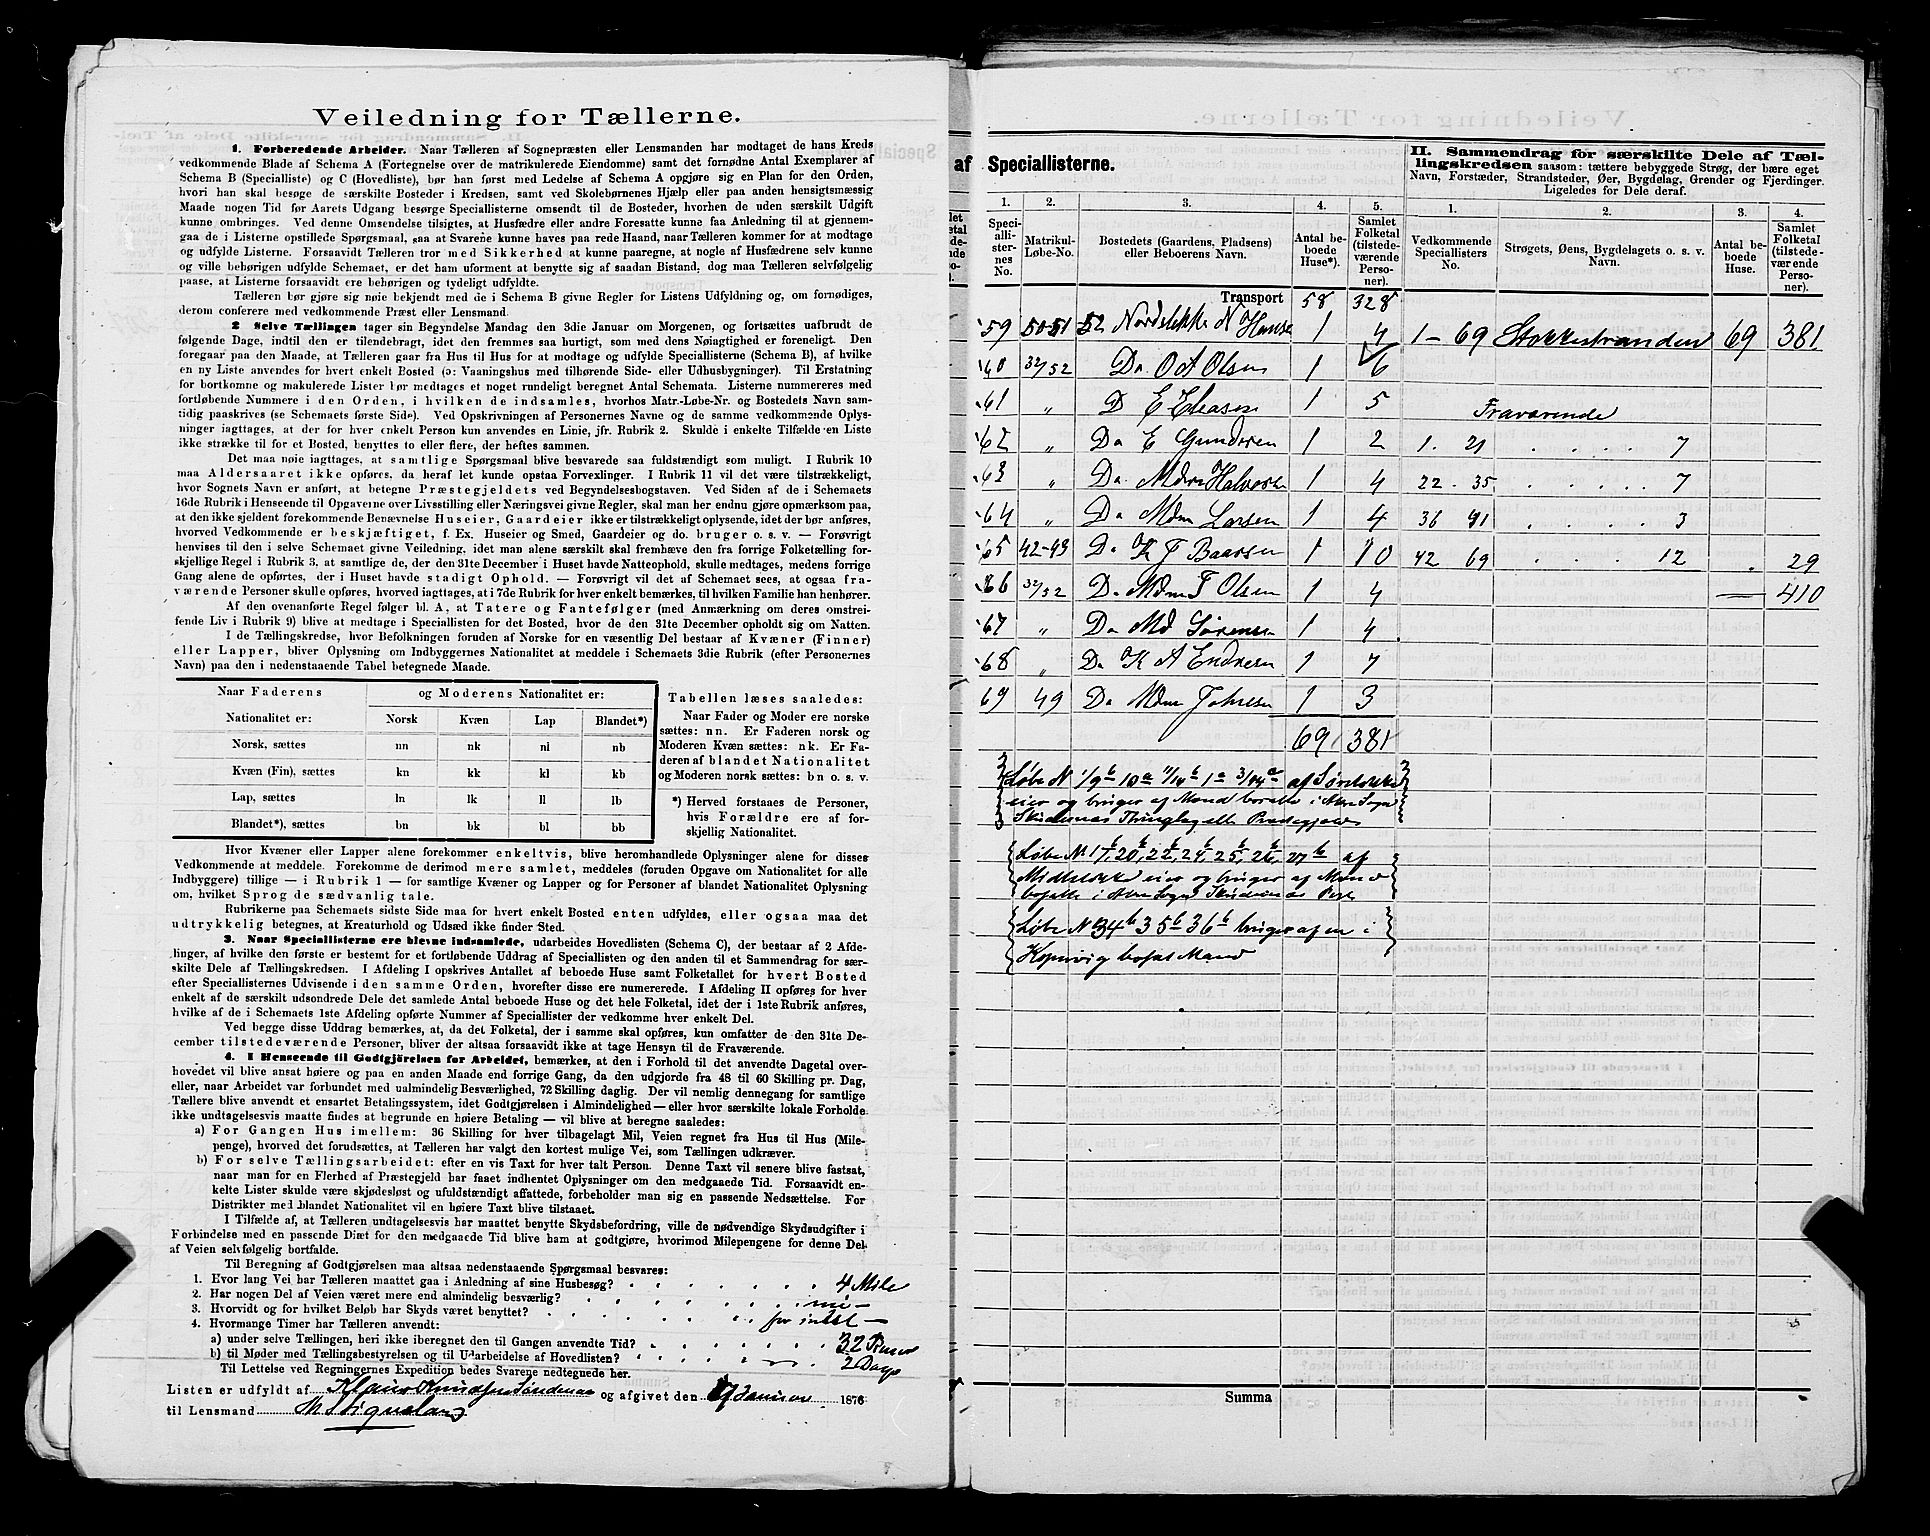 Veiledning for Tællerne.
1. Forberedende Arbeider. Naar Tælleren af Sognepræsten eller Lensmanden har modtaget de hans Kreds
vedkommende Blade af Schema A (Fortegnelse over de matrikulerede Eiendomme) samt det fornødne Antal Exemplarer af
Schema B (Specialliste) og C (Hovedliste), bør han først med Ledelse af Schema A opgjøre sig en Plan for den Orden,
hvori han skal besøge de særskilte Bosteder i Kredsen, samt ved Skolebørnenes Hjælp eller paa anden hensigtsmæssig
Maade nogen Tid før Aarets Udgang besørge Speciallisterne omsendt til de Bosteder, hvorhen de uden særskilt Udgift
kunne ombringes. Ved denne Omsendelse tilsigtes, at Husfædre eller andre Foresatte kunne faa Anledning til at gjennem-
gaa de i Listerne opstillede Spørgsmaal, saa at Svarene kunne haves paa rede Haand, naar Tælleren kommer for at modtage
og udfylde Listerne. Forsaavidt Tælleren tror med Sikkerhed at kunne paaregne, at nogle af Husfædrene selv kunne
og ville behørigen udfylde Schemaet, er det ham uforment at benytte sig af saadan Bistand, dog maa Tælleren selvfølgelig
paase, at Listerne forsaavidt ere behørigen og tydelig udfyldte.
Tælleren bør gjøre sig nøie bekjendt med de i Schema B givne Regler for Listens Udfyldning og, om fornødiges,
derom conferere med vedkommende Præst eller Lensmand.
2 Selve Tællingen tager sin Begyndelse Mandag den 3die Januar om Morgenen, og fortsættes uafbrudt de
følgende Dage, indtil den er tilendebragt, idet den fremmes saa hurtigt, som med dens Nøiagtighed er foreneligt. Den
foregaar paa den Maade, at Tælleren gaar fra Hus til Hus for at modtage og udfylde Speciallisterne (Schema B), af hvilke
en ny Liste anvendes for hvert enkelt Bosted (ɔ: Vaaningshus med tilhørende Side- eller Udhusbygninger). Til Erstatning
for bortkomne og makulerede Lister bør medtages et noget rundeligt beregnet Antal Schemata. Listerne nummereres med
fortløbende Nummere i den Orden, i hvilken de indsamles, hvorhos Matr.-Løbe-Nr. og Bostedets Navn sam-
tidig paaskrives (se Schemaets første Side). Ved Opskrivningen af Personernes Navne og de samme vedkommende Oplys-
ninger iagttages, at der for hver enkelt Person kun anvendes en Linie, jfr. Rubrik 2. Skulde i enkelte Tilfælde en Liste
ikke strække til for et Bosted, benyttes to eller flere, der heftes sammen.
Det maa nøie iagttages, at samtlige Spørgsmaal blive besvarede saa fuldstændigt som muligt. I Rubrik 10
maa Aldersaaret ikke opføres, da heraf let kunde opstaa Forvexlinger. I Rubrik 11 vil det være tilstrækkeligt,
hvor Sognets Navn er anført, at betegne Præstegjeldets ved Begyndelsesbogstaven. Ved Siden af de i Schemaets
16de Rubrik i Henseende til Opgaverne over Livsstilling eller Næringsvei givne Regler, skal man her endnu gjøre opmærksom paa,
at den ikke sjeldent forekommende Benævnelse Huseier, Gaardeier ikke er tilstrækkeligt oplysende, idet der bør anføres,
hvorved Vedkommende er beskjæftiget, f. Ex. Huseier og Smed, Gaardeier og do. bruger o. s. v. — Forøvrigt
henvises til den i selve Schemaet givne Veiledning, idet man alene særskilt skal fremhæve den fra forrige Folketælling for-
skjellige Regel i Rubrik 3, at samtlige de, der den 31te December i Huset havde Natteophold, skulle medtages, medens forrige
Gang alene de opførtes, der i Huset havde stadigt Ophold. — Forøvrigt vil det af Schemaet sees, at ogsaa fra-
værende Personer skulle opføres, hvorved iagttages, at i 7de Rubrik for hver enkelt bemærkes, til hvilken Familie han henhører.
Af den ovenanførte Regel følger bl. A., at Tatere og Fantefølger (med Anmærkning om deres omstrei-
fende Liv i Rubrik 9) blive at medtage i Speciallisten for det Bosted, hvor de den 31te December opholdt sig om Natten.
I de Tællingskredse, hvor Befolkningen foruden af Norske for en væsentlig Del bestaar af Kvæner (Finner)
eller Lapper, bliver Oplysning om Indbyggernes Nationalitet at meddele i Schemaets 3die Rubrik (efter Personernes
Navn) paa den i nedenstaaende Tabel betegnede Maade.
Naar Faderens | og Moderens Nationalitet er:
Nationalitet er: | Norsk | Kvæn | Lap | Blandet*)
Norsk, sættes | nn | nk | nl | nb
Kvæn (Fin), sættes | kn | kk | kl | kb
Lap, sættes | ln | lk | ll | lb
Blandet*), sættes | bn | bk | bl | bb
Tabellen læses saaledes:
Naar Fader og Moder ere norske
sættes: nn. Er Faderen norsk og
Moderen Kvæn sættes: nk. Er Fa-
deren af blandet Nationalitet
og Moderen norsk sættes: bn o. s. v.
*) Herved forstaaes de Personer,
hvis Forældre ere af for-
skjellig Nationalitet.
Hvor Kvæner eller Lapper alene forekommer enkeltvis, blive heromhandlede Oplysninger alene for disses
Vedkommende at meddele. Forekomme de derimod mere samlet, meddeles (foruden Opgave om Nationalitet for alle
Indbyggere) tillige — i Rubrik 1 — for samtlige Kvæner og Lapper og for Personer af blandet Nationalitet Oplysning
om, hvilket Sprog de sædvanlig tale.
Rubrikerne paa Schemaets sidste Side maa for hvert enkelt Bosted enten udfyldes, eller ogsaa maa det
udtrykkelig betegnes, at Kreaturhold og Udsæd ikke finder Sted.
3. Naar Speciallisterne ere blevne indsamlede, udarbeides Hovedlisten (Schema C), der bestaar af 2 Afde-
linger, af hvilke den første er bestemt for et fortløbende Uddrag af Speciallisten og den anden til et Sammendrag for sær-
skilte Dele af Tællingskredsen. I Afdeling I opskrives Antallet af beboede Huse samt Folketallet for hvert Bosted
efter Speciallisternes Udvisende i den samme Orden, hvorefter disse ere numererede. I Afdeling II opføres for hver
enkelt af de særskilt udsondrede Dele det samlede Antal beboede Huse og det hele Folketal, idet der i 1ste Rubrik anføres,
hvilke af de i Schemaets 1ste Afdeling opførte Nummer af Speciallister der vedkomme hver enkelt Del.
Ved begge disse Uddrag bemærkes, at, da det Folketal, der i samme skal opføres, kun omfatter de den 31te De-
cember tilstedeværende Personer, bliver der altsaa forsaavidt ikke at tage Hensyn til de Fraværende.
4. I Henseende til Godtgjörelsen for Arbeidet, bemærkes, at den i Forhold til det anvendte Dagetal over-
hovedet vil blive ansat høiere og paa en anden Maade end forrige Gang, da den udgjorde fra 48 til 60 Skilling pr. Dag,
eller, naar Arbeidet var forbundet med ualmindelig Besværlighed, 72 Skilling daglig. Der vil nemlig dennegang for samtlige
Tællere blive anvendt et ensartet Betalingssystem, idet Godtgjørelsen i Almindelighed — eller hvor særskilte lokale Forholde
ikke undtagelsesvis maatte findes at begrunde en høiere Betaling — vil blive at beregne saaledes:
a) For Gangen Hus imellem: 36 Skilling for hver tilbagelagt Mil, Veien regnet fra Hus til Hus (Mile-
penge), hvorved det forudsættes, at Tælleren har valgt den kortest mulige Vei, som Tællingen udkræver.
b) For selve Tællingsarbeidet: efter en vis Taxt for hver talt Person. Denne Taxt vil senere blive fastsat,
naar man for en Flerhed af Præstegjeld har faaet indhentet Oplysninger om den medgaaede Tid. Forsaavidt en-
kelte Lister skulde være skjødesløst og ufuldstændigt affattede, forbeholder man sig en passende Nedsættelse. For
Distrikter med blandet Nationalitet vil en høiere Taxt blive tilstaaet.
I Tilfælde af, at Tælleren undtagelsesvis har maattet benytte Skydsbefordring, ville de nødvendige Skydsudgifter i
Forbindelse med en passende Diæt for den medgaaede Tid blive ham at godtgjøre, hvorimod Milepengene for denne Del
af Veien selvfølgelig bortfalde.
Til Beregning af Godtgjørelsen maa altsaa nedenstaaende Spørgsmaal besvares:
1. Hvor lang Vei har Tælleren maattet gaa i Anledning af sine Husbesøg? 4 Mile
2. Har nogen Del af Veien været mere end almindelig besværlig?
3. Hvorvidt og for hvilket Beløb har Skyds været benyttet? for intet —
4. Hvormange Timer har Tælleren anvendt:
a) under selve Tællingen, heri ikke iberegnet den til Gangen anvendte Tid? 32 Timer
b) til Møder med Tællingsbestyrelsen og til Udarbeidelse af Hovedlisten? 2 Dage
Til Lettelse ved Regningernes Expedition bedes Svarene nedtegnede her.
Listen er udfyldt af Klaus Knudsen og afgivet den Januar 1876
til Lensmand
af Speciallisterne.
1. | 2. | 3. | 4. | 5.
Speciallisternes No. | Matrikul-Løbe-No. | Bostedets (Gaardens, Pladsens) eller Beboerens Navn. | Antal beboede Huse*). | Samlet Folketal (tilstedeværende Personer).
II. Sammendrag for særskilte Dele af Tæl-
lingskredsen saasom: tættere bebyggede Strøg, der bære eget
Navn, Forstæder, Strandsteder, Øer, Bygdelag, Grender og Fjerdinger.
Ligeledes for Dele deraf.
1. | 2. | 3. | 4.
Vedkommende Speciallisters No. | Strøgets, Øens, Bygdelagets o. s. v. Navn. | Antal beboede Huse. | Samlet Folketal (tilstedeværende Personer).
Transport 58 328
59 50-51 52 N Hansen 1 4 1 — 69 Stokkestranden 69 381
60 32/52 Do O A Olsen 1 6
61 „ D E Eliasen 1 5 Fraværende
62 „ Do E Gundersen 1 2 1. 21 7
63 „ Do. Mdm Halvorsen 1 4 22 . 35 7
64 „ Do Mdm Larsen 1 4 36 41 3
65 42-43 Do K J Baarsen 1 10 42 69 12 29
66 32/52 Do Mdm T Olsen 1 4 — 410
67 „ Do Md Sørensen 1 4
68 „ Do K A Endresen 1 7
69 49 Do Mdm Johnsen 1 3
69 381
Løbe N 1/9b 10a 11/14b 1a 3/14a af
eier og bruger af Mand bosatte i Sogn
Skudenæs
Løbe N 17b, 20b, 22b, 24b, 25b, 26b, 27b af
eier og bruger af Mand
bosatte i Sogn Skudenæs
Løbe N 34b 35b 36b bruges af en i
Kopervig bosat Mand
Summa